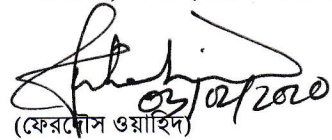 03/02/2020
(ফেরদৌস ওয়াহিদ)